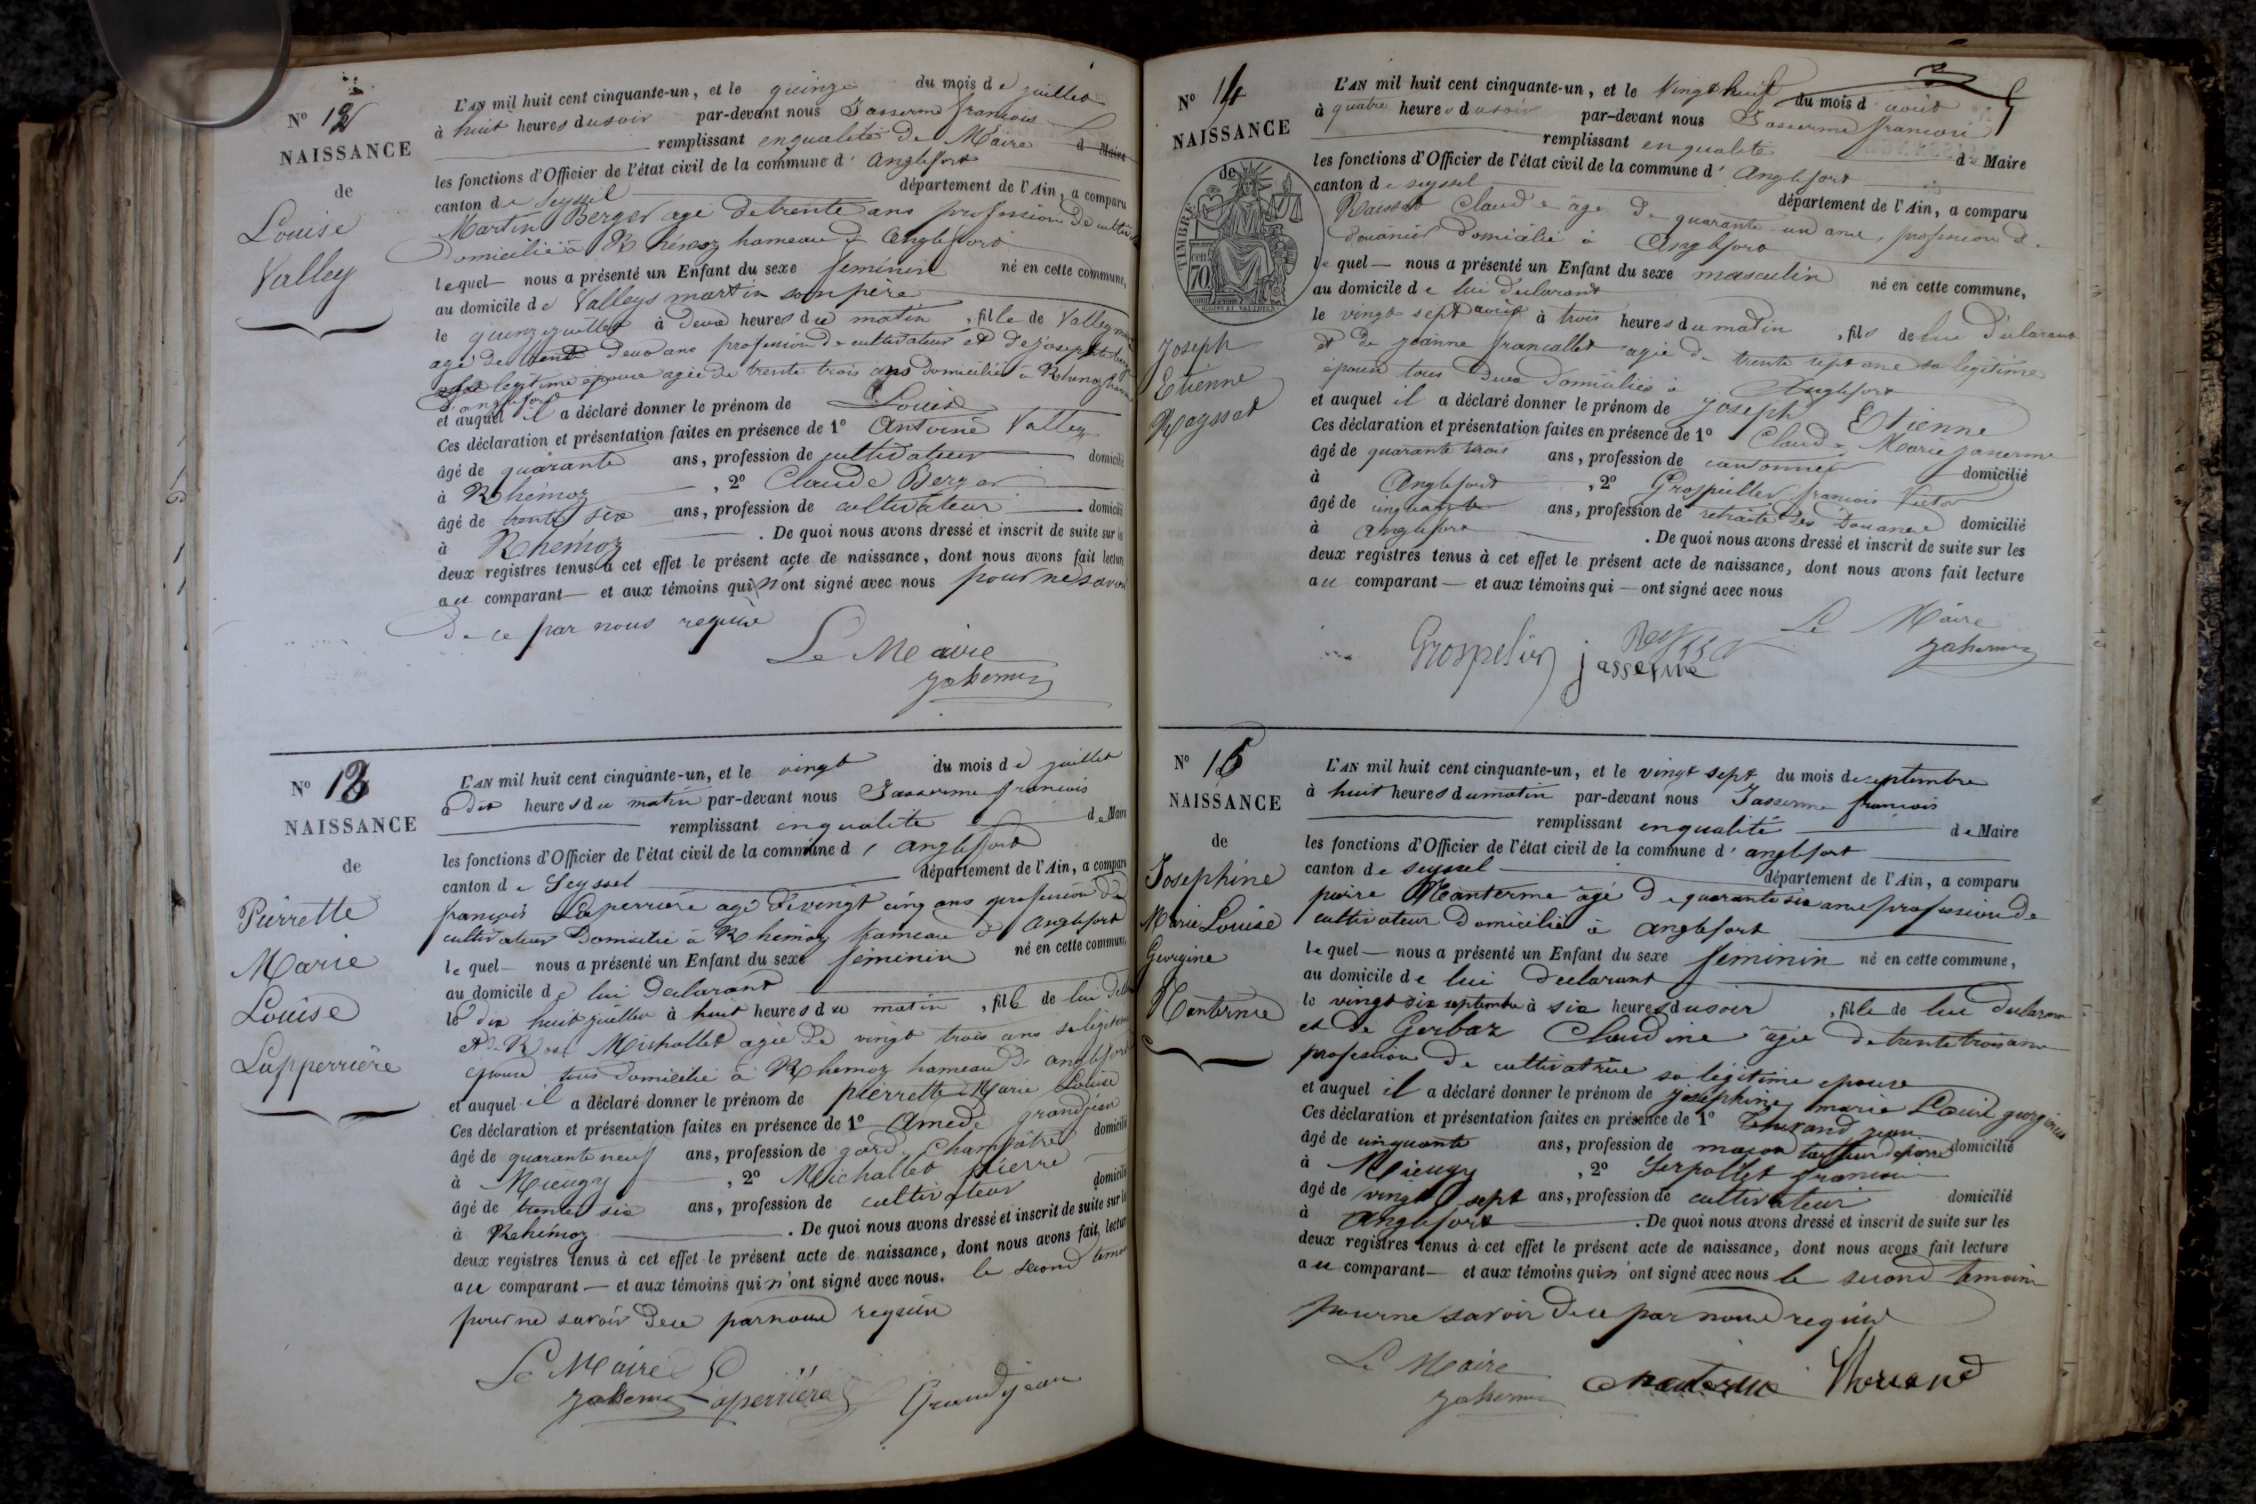 N° 12
NAISSANCE
de
Louise
Valley
L'AN mil huit cent cinquante-un, et le quinze du mois de juillet
à huit heures du soir par-devant nous Jasserme françois
remplissant en qualité de Maire d Maire
les fonctions d'Officier de l'état civil de la commune d' anglefort
canton de Seyssel département de l'Ain, a comparu
Martin Berger agé de trente ans profession de
domicilié à Rhémoz hameau d' anglefort
lequel nous a présenté un Enfant du sexe feminin né en cette commune,
au domicile de Valleys martin son père
le quinze juillet à deux heures du matin, fille de Valley
agé de deux ans profession de cultivateur et de josephte
legitime épouse agée de trente trois ans domiciliés à
d'anglefort
et auquel il a déclaré donner le prénom de Louise
Ces déclaration et présentation faites en présence de 1° Antoine Valley
âgé de quarante ans, profession de cultivateur domicilié
à Rhémoz, 2° Claude Berger
âgé de trente six ans, profession de cultivateur domicilié
à Rhémoz. De quoi nous avons dressé et inscrit de suite sur les
deux registres tenus à cet effet le présent acte de naissance, dont nous avons fait lecture
au comparant et aux témoins qui n'ont signé avec nous pour ne savoir
de ce par nous requis
Le Maire
Jasserme
N° 13
NAISSANCE
de
Pierrette
Marie
Louise
Lapperrière
L'AN mil huit cent cinquante-un, et le vingt du mois de juillet
à dix heures du matin par-devant nous Jasserme françois
remplissant en qualité de Maire
les fonctions d'Officier de l'état civil de la commune d' anglefort
canton de Seyssel département de l'Ain, a comparu
françois Laperrière agé de vingt cinq ans profession de
cultivateur domicilié à Rhémoz hameau d' Anglefort
lequel nous a présenté un Enfant du sexe féminin né en cette commune,
au domicile de lui déclarant
le dix huit juillet à huit heures du matin, fille de lui
et de Rose Michallet agée de vingt trois ans sa légitime
épouse tous domicilié à Rhemoz hameau d' anglefort
et auquel il a déclaré donner le prénom de pierrette Marie Louise
Ces déclaration et présentation faites en présence de 1° Amédé grandjean
âgé de quarante neuf ans, profession de garde Champêtre domicilié
à Mieugy, 2° Michallet pierre
âgé de trente six ans, profession de cultivateur domicilié
à Rehémoz. De quoi nous avons dressé et inscrit de suite sur les
deux registres tenus à cet effet le présent acte de naissance, dont nous avons fait lecture
au comparant et aux témoins qui n'ont signé avec nous. le second temoin
pour ne savoir de ce par nous requis
Le Maire
Jasserme Laperrière Grandjean
N° 14
NAISSANCE
de
TIMBRE
70
Joseph
Etienne
Rayssat
L'AN mil huit cent cinquante-un, et le Vingt huit du mois d' août
à quatre heures du soir par-devant nous Jasserme françois
remplissant en qualité de Maire
les fonctions d'Officier de l'état civil de la commune d' Anglefort
canton de seyssel département de l'Ain, a comparu
Raissat Claude âgé de quarante un ans, profession de
douanier domicilié à Anglefort
lequel nous a présenté un Enfant du sexe masculin né en cette commune,
au domicile de lui déclarant
le vingt sept août à trois heures du matin, fils de lui déclarant
et de jeanne francallet agée de trente sept ans sa legitime
épouse tous deux domiciliés à Anglefort
et auquel il a déclaré donner le prénom de Joseph Etienne
Ces déclaration et présentation faites en présence de 1° Claude Marie jasserme
âgé de quarante trois ans, profession de cantonnier domicilié
à Anglefort, 2° françois Victor
âgé de cinquante ans, profession de retraité des Douanes domicilié
à Anglefort. De quoi nous avons dressé et inscrit de suite sur les
deux registres tenus à cet effet le présent acte de naissance, dont nous avons fait lecture
au comparant et aux témoins qui ont signé avec nous
Le Maire
jasserme Jasserme
N° 15
NAISSANCE
de
Josephine
Marie Louise
Georgine
Manterme
L'AN mil huit cent cinquante-un, et le vingt sept du mois de septembre
à huit heures du matin par-devant nous Jasserme françois
remplissant en qualité de Maire
les fonctions d'Officier de l'état civil de la commune d' anglefort
canton de seyssel département de l'Ain, a comparu
pierre Manterme agé de quarante six ans profession de
cultivateur domicilié à anglefort
lequel nous a présenté un Enfant du sexe féminin né en cette commune,
au domicile de lui declarant
le vingt six septembre à six heures du soir, fille de lui declarant
et de Gerbaz Claudine agée de trente trois ans
profession de cultivatrice sa légitime epouse
et auquel il a déclaré donner le prénom de josephine marie Louise georgine
Ces déclaration et présentation faites en présence de 1° jean
âgé de cinquante ans, profession de maçon tailleur de pierre domicilié
à Mieugy, 2° Serpollet françois
âgé de vingt sept ans, profession de cultivateur domicilié
à Anglefort. De quoi nous avons dressé et inscrit de suite sur les
deux registres tenus à cet effet le présent acte de naissance, dont nous avons fait lecture
au comparant et aux témoins qui n'ont signé avec nous le second temoin
pour ne savoir de ce par nous requis
Le Maire
Jasserme